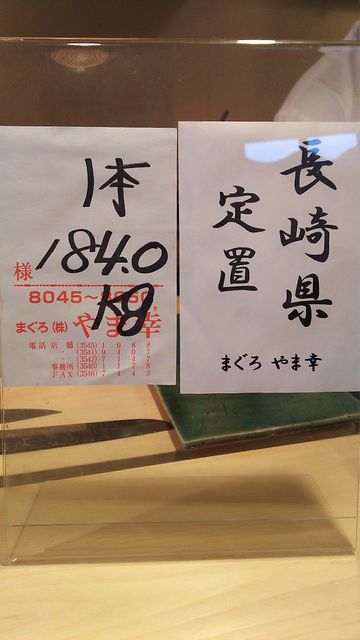 1本
184.0
Kg
様
まぐろ(株)やま幸
電話店舗(3545)1088
〃(3541)9407
(3547)7117
事務所(3545)1748
FAX(3546)7443
長崎県
定置
まぐろ やま幸